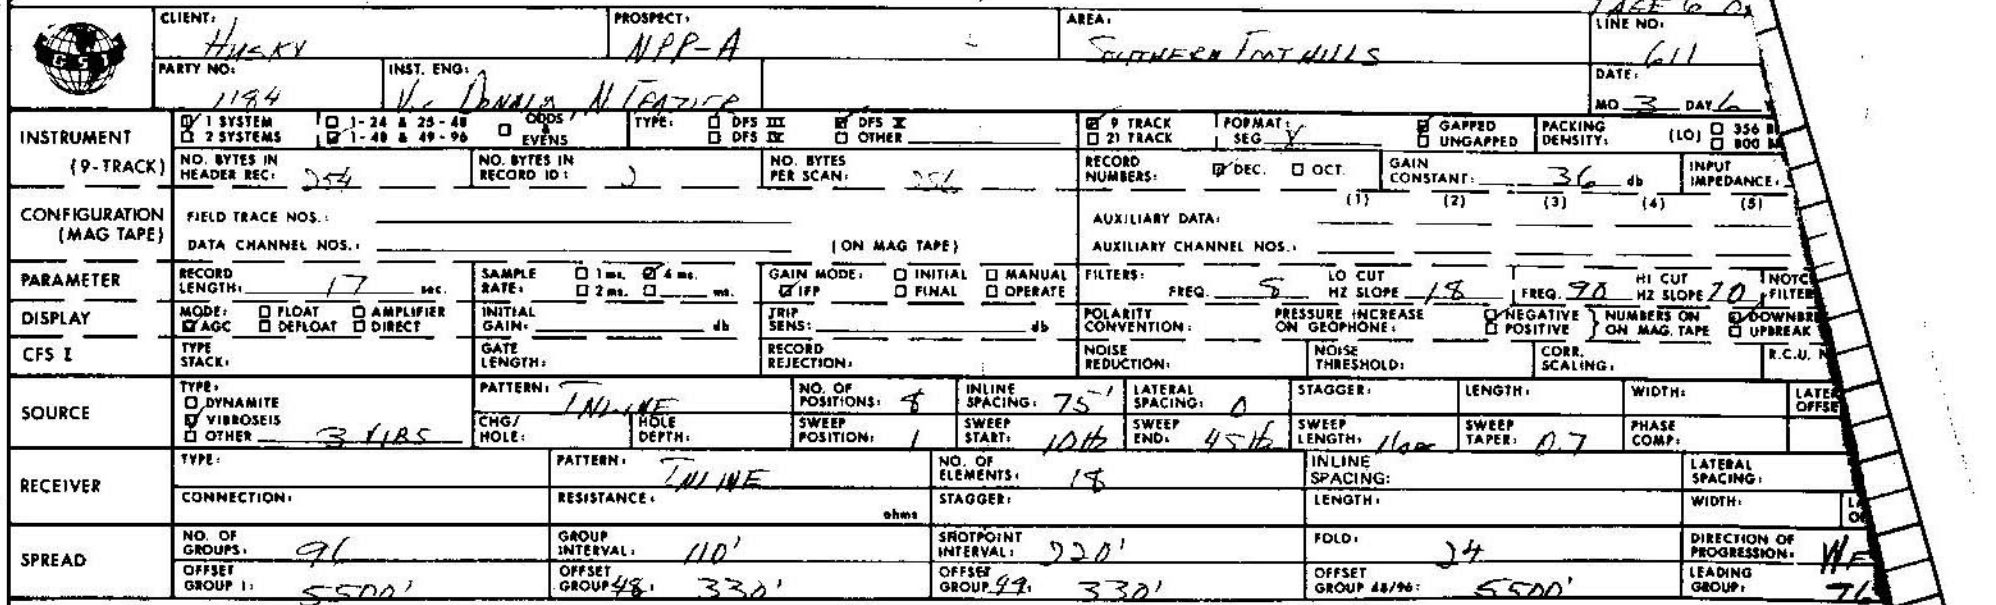 PAGE 6 O
CLIENT: HUSKY PROSPECT: NPP-A AREA: SOUTHERN FOOTHILLS LINE NO: 611
GSI
PARTY NO: 1184 INST. ENG: DATE: MO 3 DAY 6
INSTRUMENT (9-TRACK)
☑ 1 SYSTEM ☐ 1-24 & 25-48 ☐ ODDS & EVENS TYPE: ☐ DFS III ☑ DFS V ☑ 9 TRACK FORMAT: ☑ GAPPED PACKING (LO) ☐ 356
☐ 2 SYSTEMS ☑ 1-48 & 49-96 ☐ DFS IV ☐ OTHER ☐ 21 TRACK SEG Y ☐ UNGAPPED DENSITY: ☐ 800
NO. BYTES IN HEADER REC: 254 NO. BYTES IN RECORD ID: 2 NO. BYTES PER SCAN: RECORD NUMBERS: ☑ DEC. ☐ OCT. GAIN CONSTANT: 36 db INPUT IMPEDANCE:
CONFIGURATION (MAG TAPE)
FIELD TRACE NOS.: AUXILIARY DATA: (1) (2) (3) (4) (5)
DATA CHANNEL NOS.: (ON MAG TAPE) AUXILIARY CHANNEL NOS.:
PARAMETER
RECORD LENGTH: 17 sec. SAMPLE RATE: ☐ 1 ms. ☑ 4 ms. ☐ 2 ms. ☐ ms. GAIN MODE: ☐ INITIAL ☐ MANUAL ☑ IFP ☐ FINAL ☐ OPERATE FILTERS: FREQ. 8 LO CUT HZ SLOPE 18 FREQ. 90 HI CUT HZ SLOPE 70 NOTC FILTER
DISPLAY
MODE: ☐ FLOAT ☐ AMPLIFIER ☑ AGC ☐ DEFLOAT ☐ DIRECT INITIAL GAIN: db TRIP SENS: db POLARITY CONVENTION: PRESSURE INCREASE ON GEOPHONE: ☑ NEGATIVE ☐ POSITIVE } NUMBERS ON ON MAG. TAPE ☑ DOWNBR ☐ UPBREAK
CFS I TYPE STACK: GATE LENGTH: RECORD REJECTION: NOISE REDUCTION: NOISE THRESHOLD: CORR. SCALING: R.C.U. N
SOURCE
TYPE: ☐ DYNAMITE ☑ VIBROSEIS ☐ OTHER 3 VIBS
PATTERN: INLINE NO. OF POSITIONS: 8 INLINE SPACING: 75' LATERAL SPACING: 0 STAGGER: LENGTH: WIDTH: LATER OFFSE
CHG/HOLE: HOLE DEPTH: SWEEP POSITION: 1 SWEEP START: 10Hz SWEEP END: 45Hz SWEEP LENGTH: SWEEP TAPER: 0.7 PHASE COMP:
RECEIVER
TYPE: PATTERN: INLINE NO. OF ELEMENTS: 18 INLINE SPACING: LATERAL SPACING:
CONNECTION: RESISTANCE: ohms STAGGER: LENGTH: WIDTH:
SPREAD
NO. OF GROUPS: 96 GROUP INTERVAL: 110' SHOTPOINT INTERVAL: 220' FOLD: 24 DIRECTION OF PROGRESSION:
OFFSET GROUP 1: 5500' OFFSET GROUP 48: 330' OFFSET GROUP 49: 330' OFFSET GROUP 48/96: 5500' LEADING GROUP: